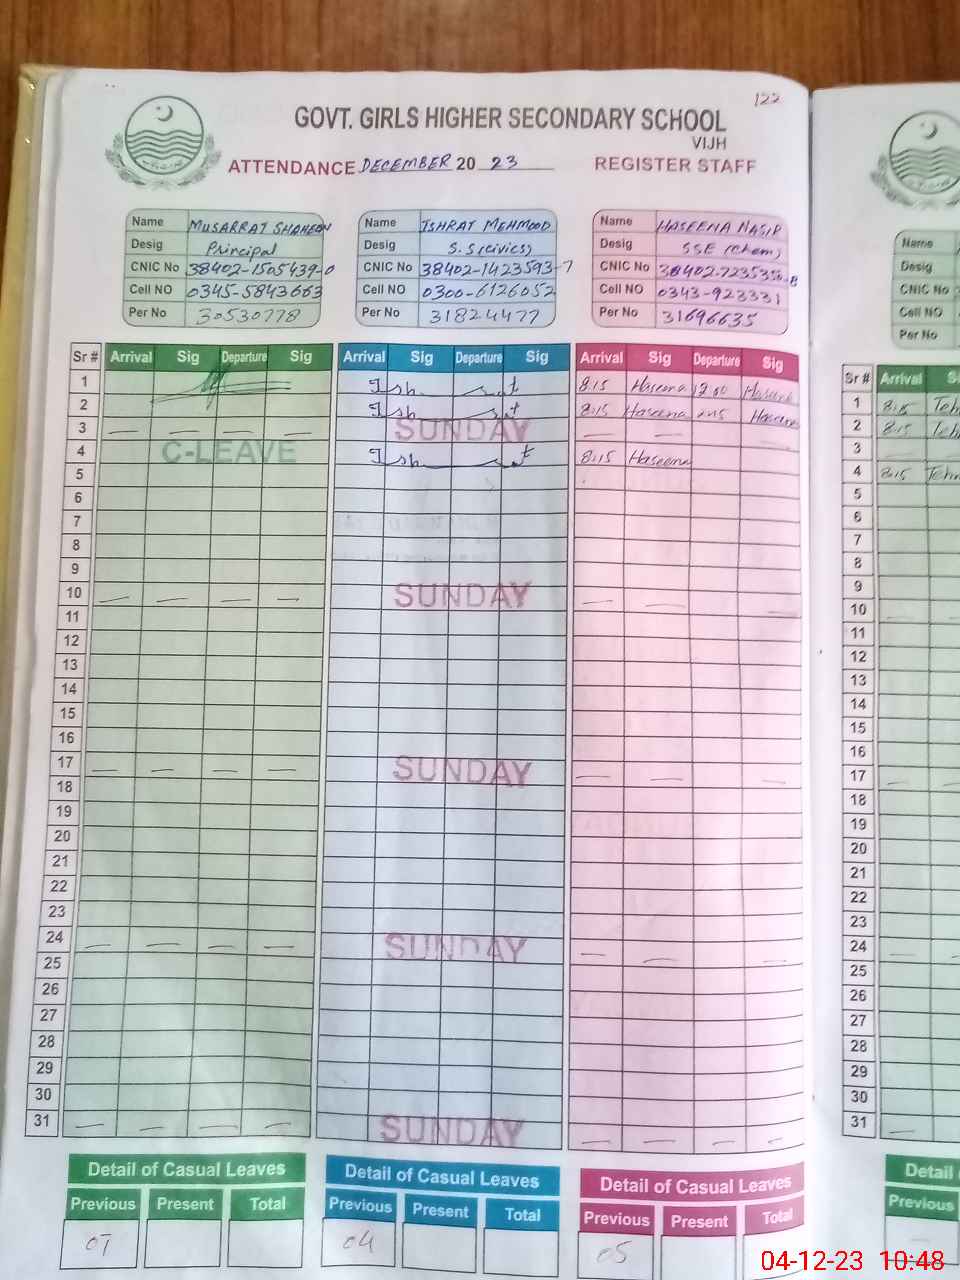 122
GOVT. GIRLS HIGHER SECONDARY SCHOOL
VIJH
ATTENDANCE DECEMBER 20 23 REGISTER STAFF
Name MUSARRAT SHAHEEN Name ISHRAT MEHMOOD Name HASEENA NASIR
Desig Principal Desig S.S (civics) Desig SSE (Chem) Name
CNIC No 38402-1505439-0 CNIC No 38402-1423593-7 CNIC No 38402-7235356-8 Desig
Cell NO 0345-5843663 Cell NO 0300-6126052 Cell NO 0343-923331 CNIC No
Per No 30530778 Per No 31824477 Per No 31696635 Cell NO
Per No
Sr # Arrival Sig Departure Sig Arrival Sig Departure Sig Arrival Sig Departure Sig Sr # Arrival
1 Ish t 8:15 Haseena 12:00 Haseena 1 8:15 Teh
2 Ish t 8:15 Haseena Haseena 2 8:15 Teh
3 — — — — SUNDAY — — 3 —
4 C-LEAVE Ish t 8:15 Haseena 4 8:15 Teh
5 5
6 6
7 7
8 8
9 9
10 — — — — SUNDAY — — — 10
11 11
12 12
13 13
14 14
15 15
16 16
17 — — — — SUNDAY — — — 17 —
18 18
19 19
20 20
21 21
22 22
23 23
24 — — — — SUNDAY — — — 24 — —
25 25
26 26
27 27
28 28
29 29
30 30
31 — — — — SUNDAY — — — — 31 —
Detail of Casual Leaves Detail of Casual Leaves Detail of Casual Leaves Detail
Previous Present Total Previous Present Total Previous Present Total Previous
07 04 05 —
04-12-23 10:48